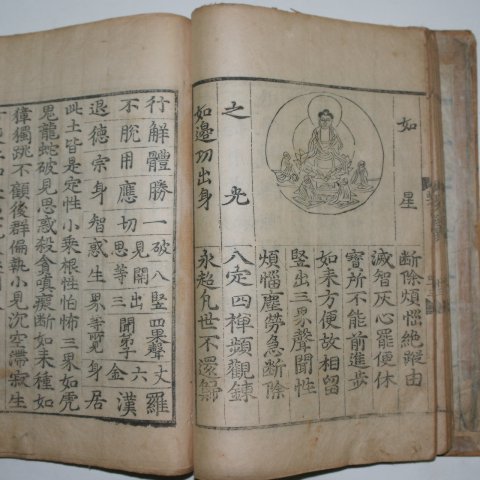 如星
斷除煩惱絶蹤由
滅智灰心罷便休
寶所不能前進步
如来方便故相留
竪出三界聲聞性
煩惱塵勞急斷除
之光
八定四禪頻觀鍊
如邊功出身
永超凡世不還歸
行解體勝一破八竪四果聲丈羅
不脫用應切見思開等出三聞六金漢
退德宗身智惑生界等覺身居
此土皆是定性小乗根性怕怖三界如虎
兕龍蛇破見思惑殺貪嗔癡断如来種如
獐獨跳不顧後群偏執小見沉空滯寂生